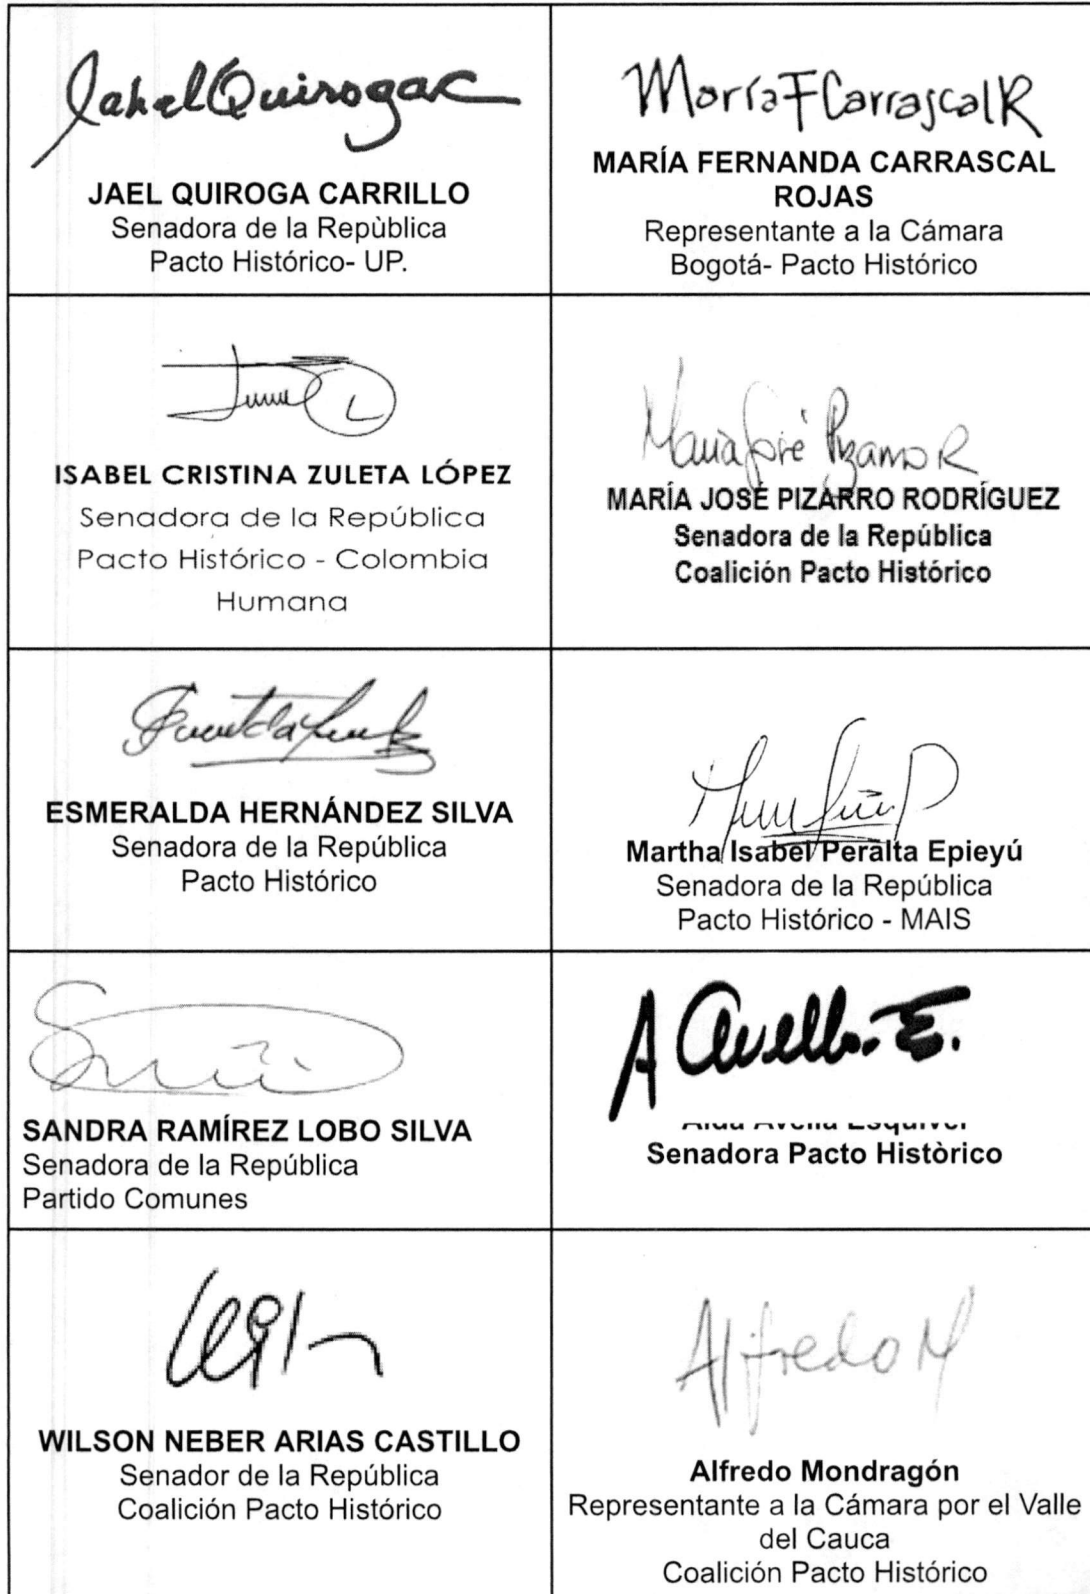 JahelQuirogaC
JAEL QUIROGA CARRILLO
Senadora de la Repùblica
Pacto Histórico- UP.
María F Carrascal R
MARÍA FERNANDA CARRASCAL
ROJAS
Representante a la Cámara
Bogotá- Pacto Histórico
ISABEL CRISTINA ZULETA LÓPEZ
Senadora de la República
Pacto Histórico - Colombia
Humana
María José Pizarro R
MARÍA JOSÉ PIZARRO RODRÍGUEZ
Senadora de la República
Coalición Pacto Histórico
ESMERALDA HERNÁNDEZ SILVA
Senadora de la República
Pacto Histórico
Martha Isabel Peralta Epieyú
Senadora de la República
Pacto Histórico - MAIS
SANDRA RAMÍREZ LOBO SILVA
Senadora de la República
Partido Comunes
A Avella. E.
Aida Avella Esquivel
Senadora Pacto Històrico
WILSON NEBER ARIAS CASTILLO
Senador de la República
Coalición Pacto Histórico
Alfredo M
Alfredo Mondragón
Representante a la Cámara por el Valle
del Cauca
Coalición Pacto Histórico